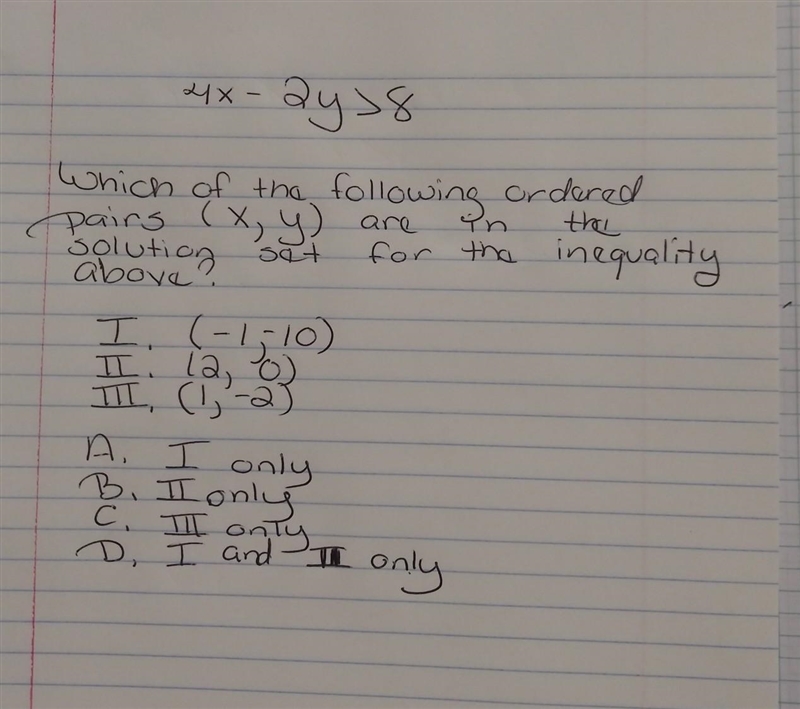 4x - 2y > 8
Which of the following ordered
pairs (x, y) are in the
solution set for the inequality
above?
I. (-1, -10)
II. (2, 0)
III. (1, -2)
A. I only
B. II only
C. III only
D. I and II only